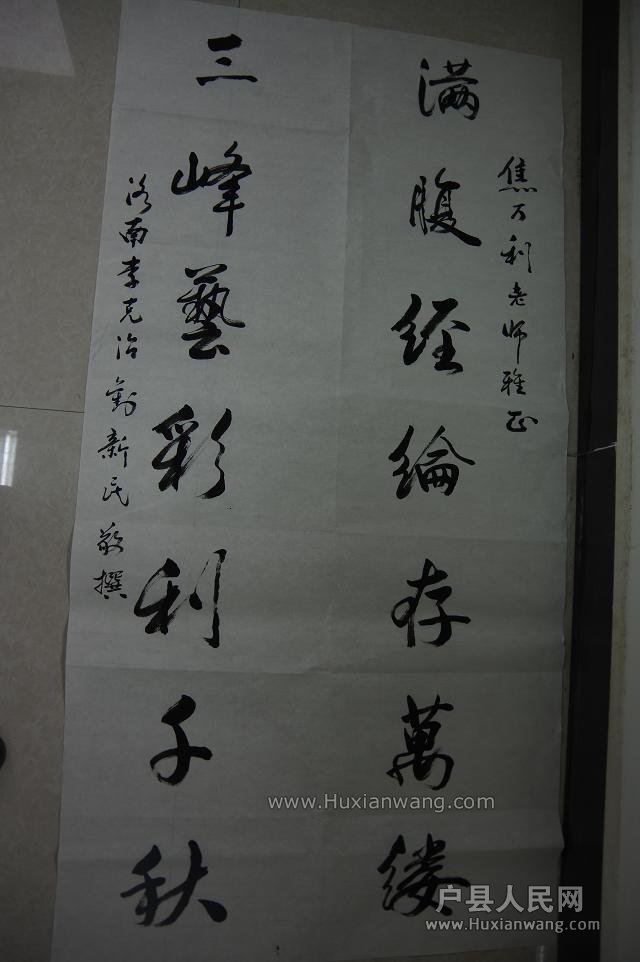 焦万利老师雅正
满腹经纶存萬缕
三峰藝彩利千秋
洛南李克治 刘新民 敬撰
www.Huxianwang.com
户县人民网
www.Huxianwang.com